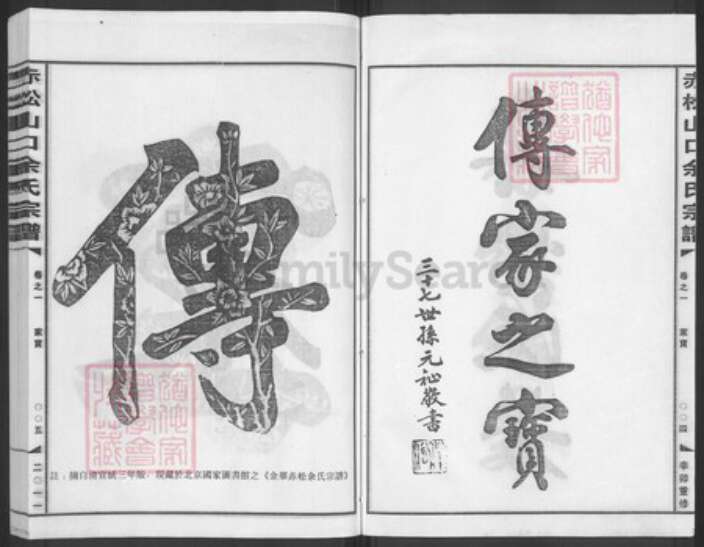 赤松山口余氏宗譜
卷之一
家寶
〇〇四
辛卯重修
傳家之寶
三十七世孫元祕敬書
猶他家譜學會
FamilySearch
傳
註:摘自清宣統三年版,現藏於北京國家圖書館之《金華赤松余氏宗譜》
猶他家譜學會藏
赤松山口余氏宗譜
卷之一
家寶
〇〇五
二〇一一